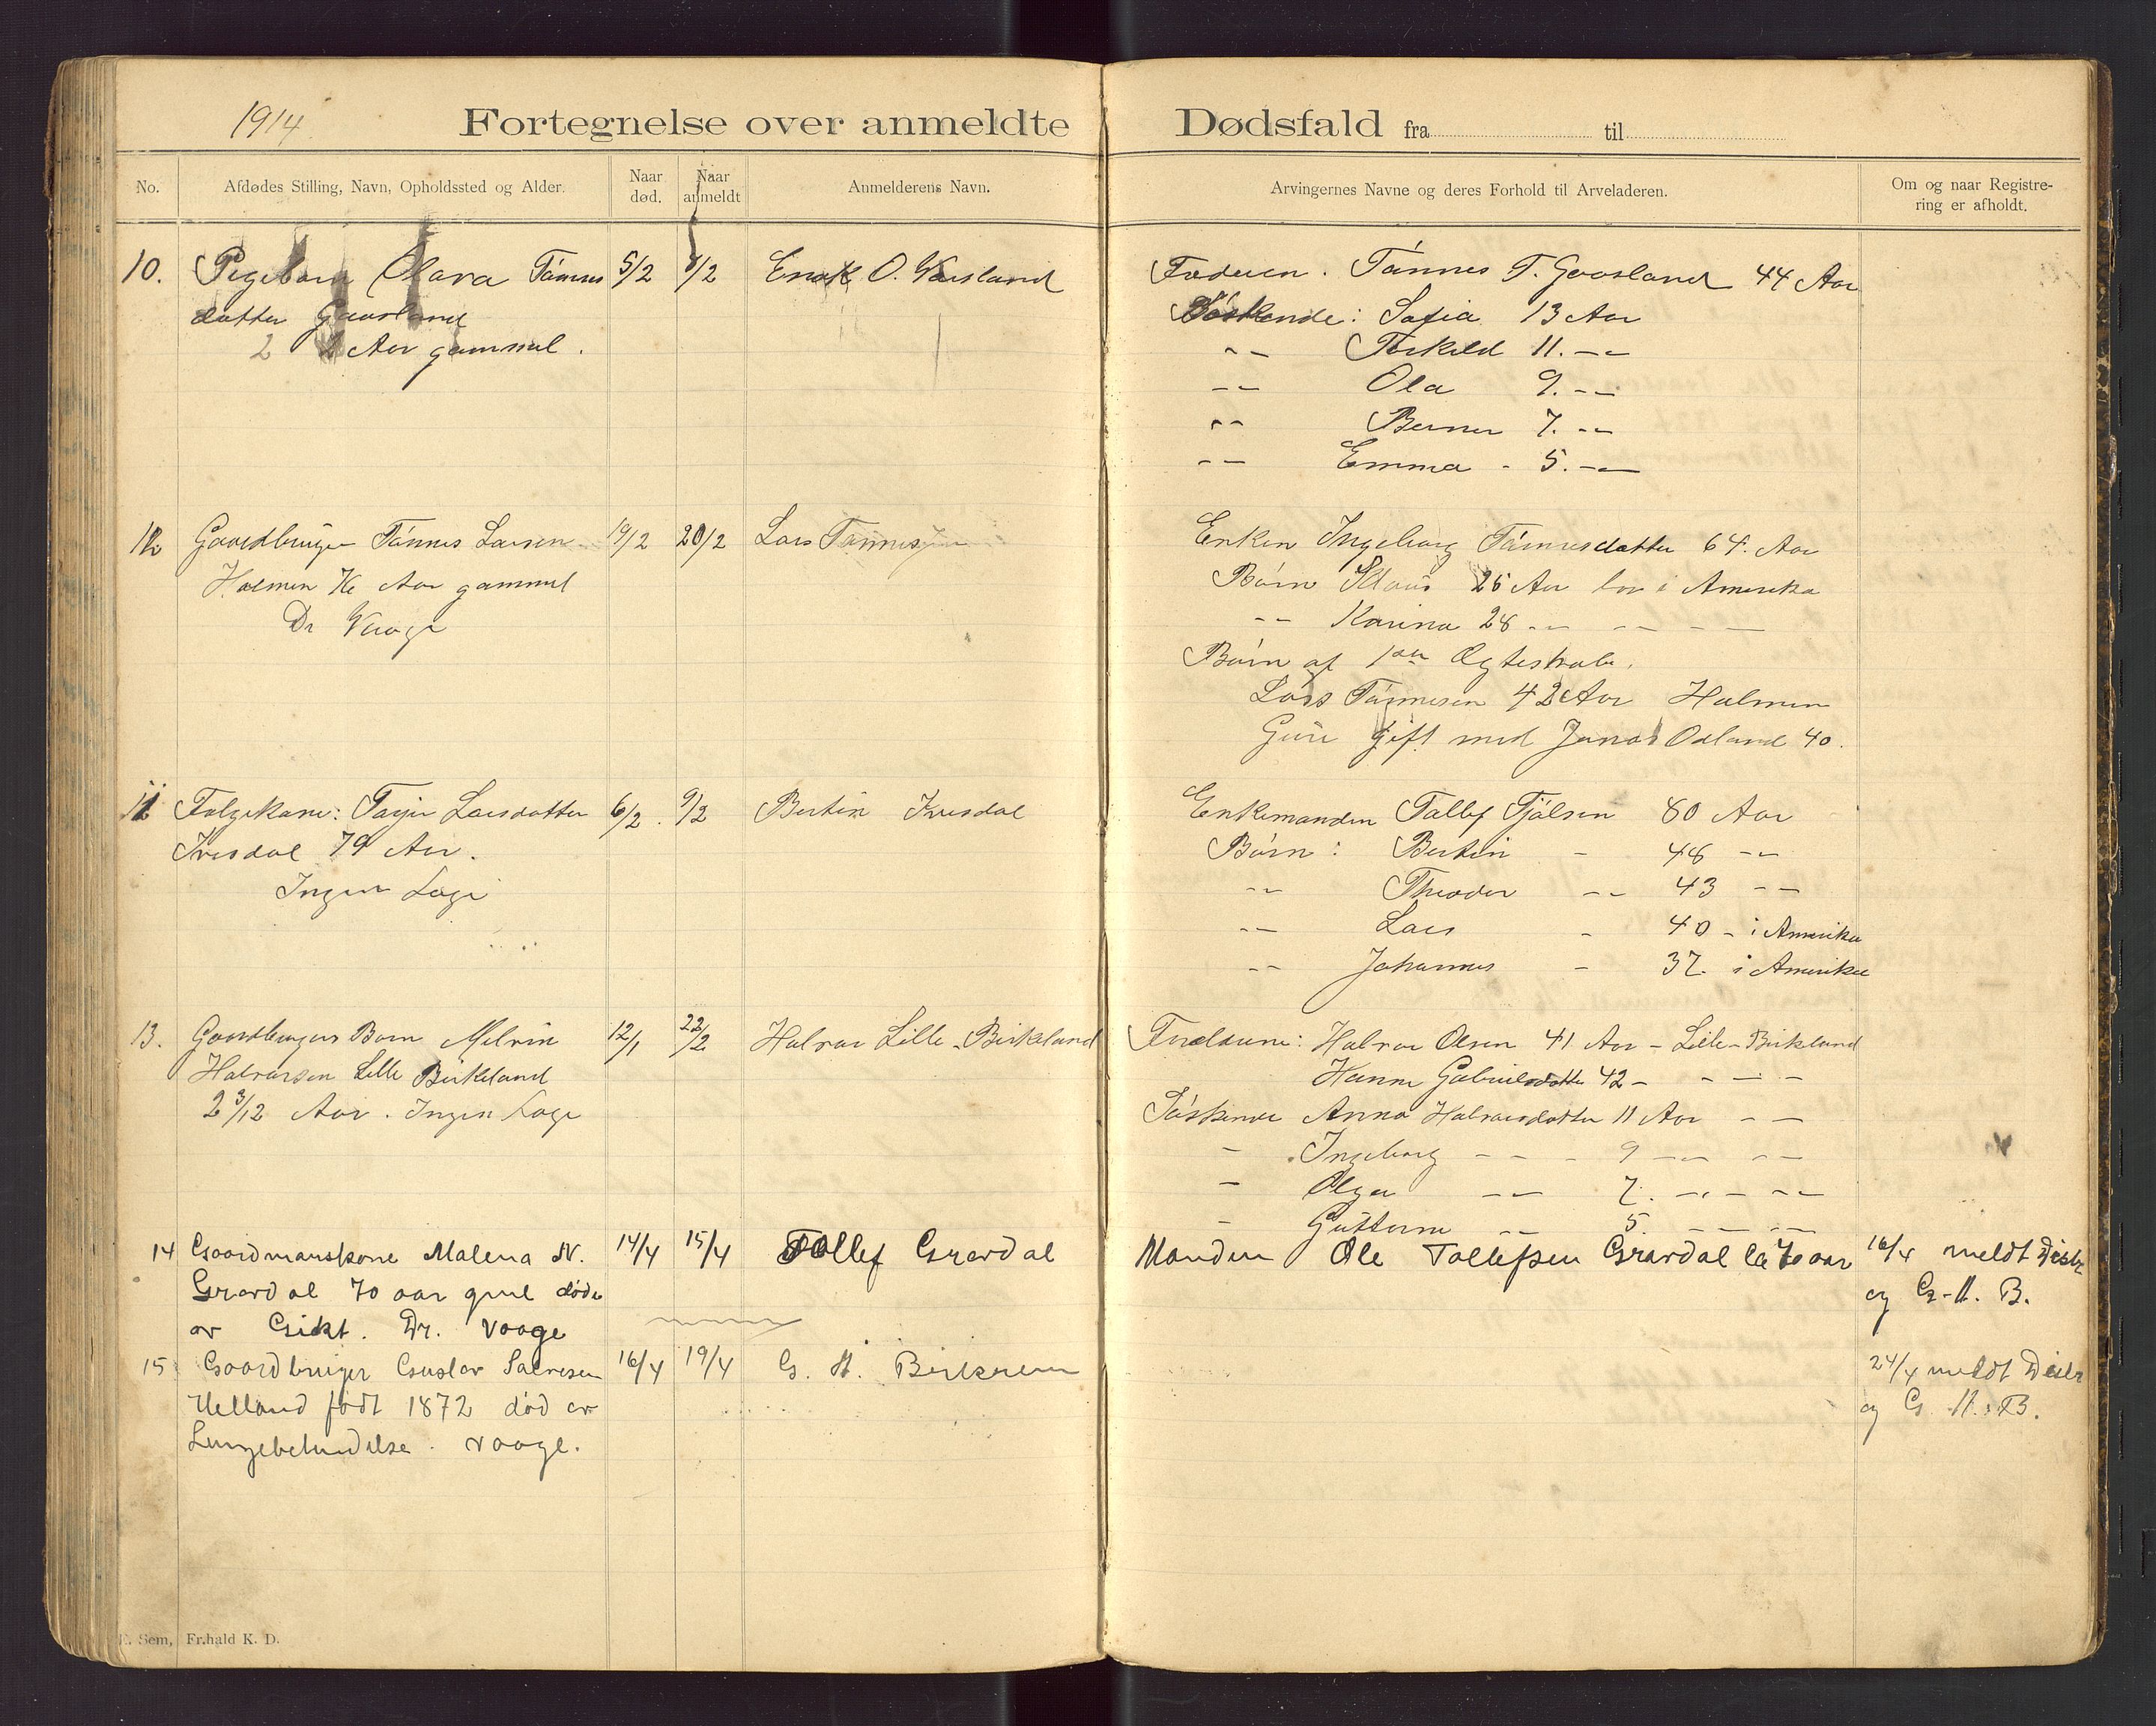 1914
Fortegnelse over anmeldte Dødsfald fra til
No.
Afdødes Stilling, Navn, Opholdssted og Alder.
Naar død.
Naar anmeldt
Anmelderens Navn.
Arvingernes Navne og deres Forhold til Arveladeren.
Om og naar Registre-
ring er afholdt.
10. Pigebarn Clara Tønnes 5/2 /2 Enok O. Gausland
datter Gausland
2 2 Aar gammel.
Faderen. Tønnes T. Gausland 44 Aar
Søskende: Sofia 13 Aar
-- Torkild 11. --
-- Ola 9. --
-- Berner 7. --
-- Emma - 5. --
12 Gaardbruger Tønnes Larsen 19/2 20/2 Lars Tønnesen
Holmen 76 Aar gammel
Dr Vaage
Enken Ingeborg Tønnesdatter 64. Aar
Børn 25 Aar bor i Amerika
-- Karina 28 -- -- -- --
Børn af 1ste Ægteskab.
Lars Tønnesen 42 Aar Holmen
Guri gift med Jonas Odland 40.
11 Folgekone: Tarjer Larsdatter 6/2. 9/2 Bertin Ivesdal
Ivesdal 79 Aar.
Ingen Læge
Enkemanden Tollef Tjølsen 80 Aar
Børn: Bertin - 48 --
-- Theodor -- 43 --
-- Lars - 40 - i Amerika
-- Johannes - 37. i Amerika
13. Gaardbrugers Barn Melvin 12/1 22/2 Halvor Lille-Birkeland
Halvorsen Lille Birkeland
2 3/12 Aar. Ingen Læge
Forældrene: Halvor Olsen 41 Aar - Lille-Birkland
Hanne Gabrielsdatter 42 - - - -
Søskende Anna Halvorsdatter 11 Aar - -
- Ingeborg - - - 9 -- --
- Olga -- 7. -- - --
- Guttorm -- 5 -- --
14 Gaardmanskone Malena N. 14/4 15/4 Tollef Gravdal
Gravdal 70 aar gml døde
av Gikt. Dr. Vaage
Manden Ole Tollefsen Gravdal 70 aar
16/4 meldt Distr
og G. H. B.
15 Gaardbruger Gustav Salvesen 16/4 19/4 G. H. Birkrem
Helland født 1872 død av
Lungebetendelse. Vaage.
24/4 meldt Distr
og G. H. B.
E. Sem, Fr.hald K. D.